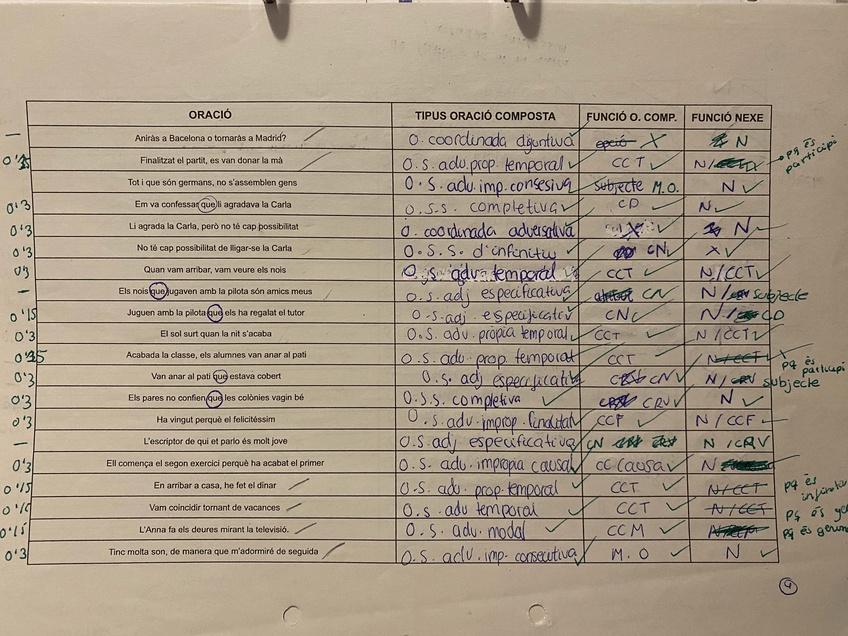 ORACIÓ TIPUS ORACIÓ COMPOSTA FUNCIÓ O. COMP. FUNCIÓ NEXE
— Aniràs a Bacelona o tornaràs a Madrid? O. coordinada disjuntiva X N
Finalitzat el partit, es van donar la mà O.s. adv. prop. temporal CCT N/ pq és participi
Tot i que són germans, no s'assemblen gens O.s. adv. imp. consesiva M.O. N
0'3 Em va confessar que li agradava la Carla O.S.S. completiva CD N
0'3 Li agrada la Carla, però no té cap possibilitat O. coordinada adversativa X N
0'3 No té cap possibilitat de lligar-se la Carla O.S.S. d'infinitiu CN X
0'3 Quan vam arribar, vam veure els nois O.s. adv. temporal CCT N/CCT
— Els nois que jugaven amb la pilota són amics meus O.s. adj especificativa CN N/ subjecte
0'15 Juguen amb la pilota que els ha regalat el tutor O.s. adj. especificativa CN N/ CD
0'3 El sol surt quan la nit s'acaba O.S. adv. pròpia temporal CCT N/CCT
Acabada la classe, els alumnes van anar al pati O.s. adv. prop. temporal CCT N/CCT X pq és participi
0'3 Van anar al pati que estava cobert O.s. adj especificativa CNV N/ subjecte
0'3 Els pares no confien que les colònies vagin bé O.S.S. completiva CRV N
0'3 Ha vingut perquè el felicitéssim O.s. adv. improp. finalitat CCF N/CCF
— L'escriptor de qui et parlo és molt jove O.S. adj especificativa CN N/CRV
0'3 Ell comença el segon exercici perquè ha acabat el primer O.S. adv. impropia causal CC causa N
0'15 En arribar a casa, he fet el dinar O.S. adv. prop. temporal CCT N/CCT pq és
Vam coincidir tornant de vacances O.S. adv temporal CCT N/CCT pq és
0'15 L'Anna fa els deures mirant la televisió. O.s. adv. modal CCM pq és
0'3 Tinc molta son, de manera que m'adormiré de seguida O.S. adv. imp. consecutiva M.O N